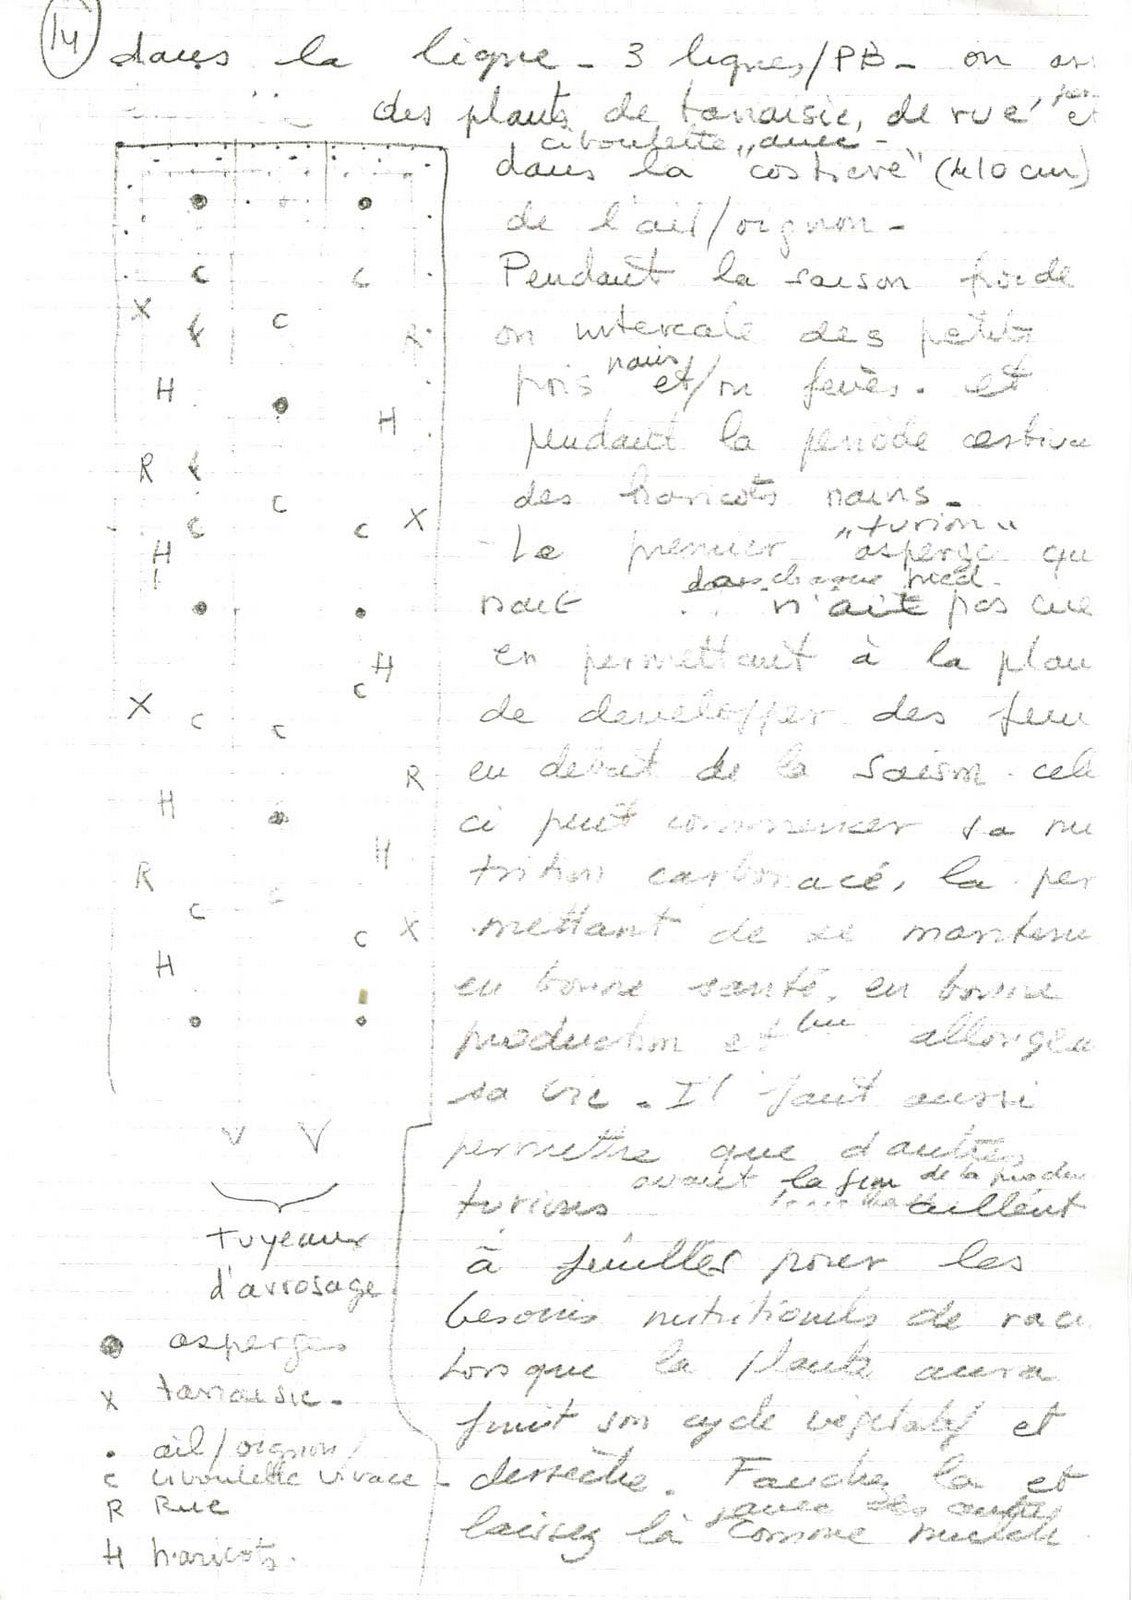 14
dans la ligne - 3 lignes/PB - on
des plants de tanaisie, de rue, et
ciboulette, avec -
dans la "costière" (h 10 cm)
de l'ail/oignon -
Pendant la saison froide
on intercale des petits
pois nains et/ou fèves. et
pendant la période estiva
des haricots nains -
"turion"
- Le premier asperge qu
dans chaque pied.
nait n'ait pas cue
en permettant à la plan
de developper des feu
en debut de la saison. cele
ci peut commencer sa nu
trition carbonacé, la per
mettant de se mantenir
en bonne santé, en bonne
production et lui allongea
sa vie. Il faut aussi
permettre que d'autres
avant la fin de la produ
turions aillent
à feuilles pour les
besoins nutritionels de raci
Lorsque la plante aura
finit son cycle végétatif et
dessèche. Fauchez la et
avec les autres
laissez là comme mulch
C C
X C R
H H
R
C X
C C
H
H
X C C C
R
H
H
R C C
C X
H
tuyeaux
d'arrosage
asperges
X tanaisie -
. ail/oignon/
C ciboulette vivace -
R Rue
H haricots.